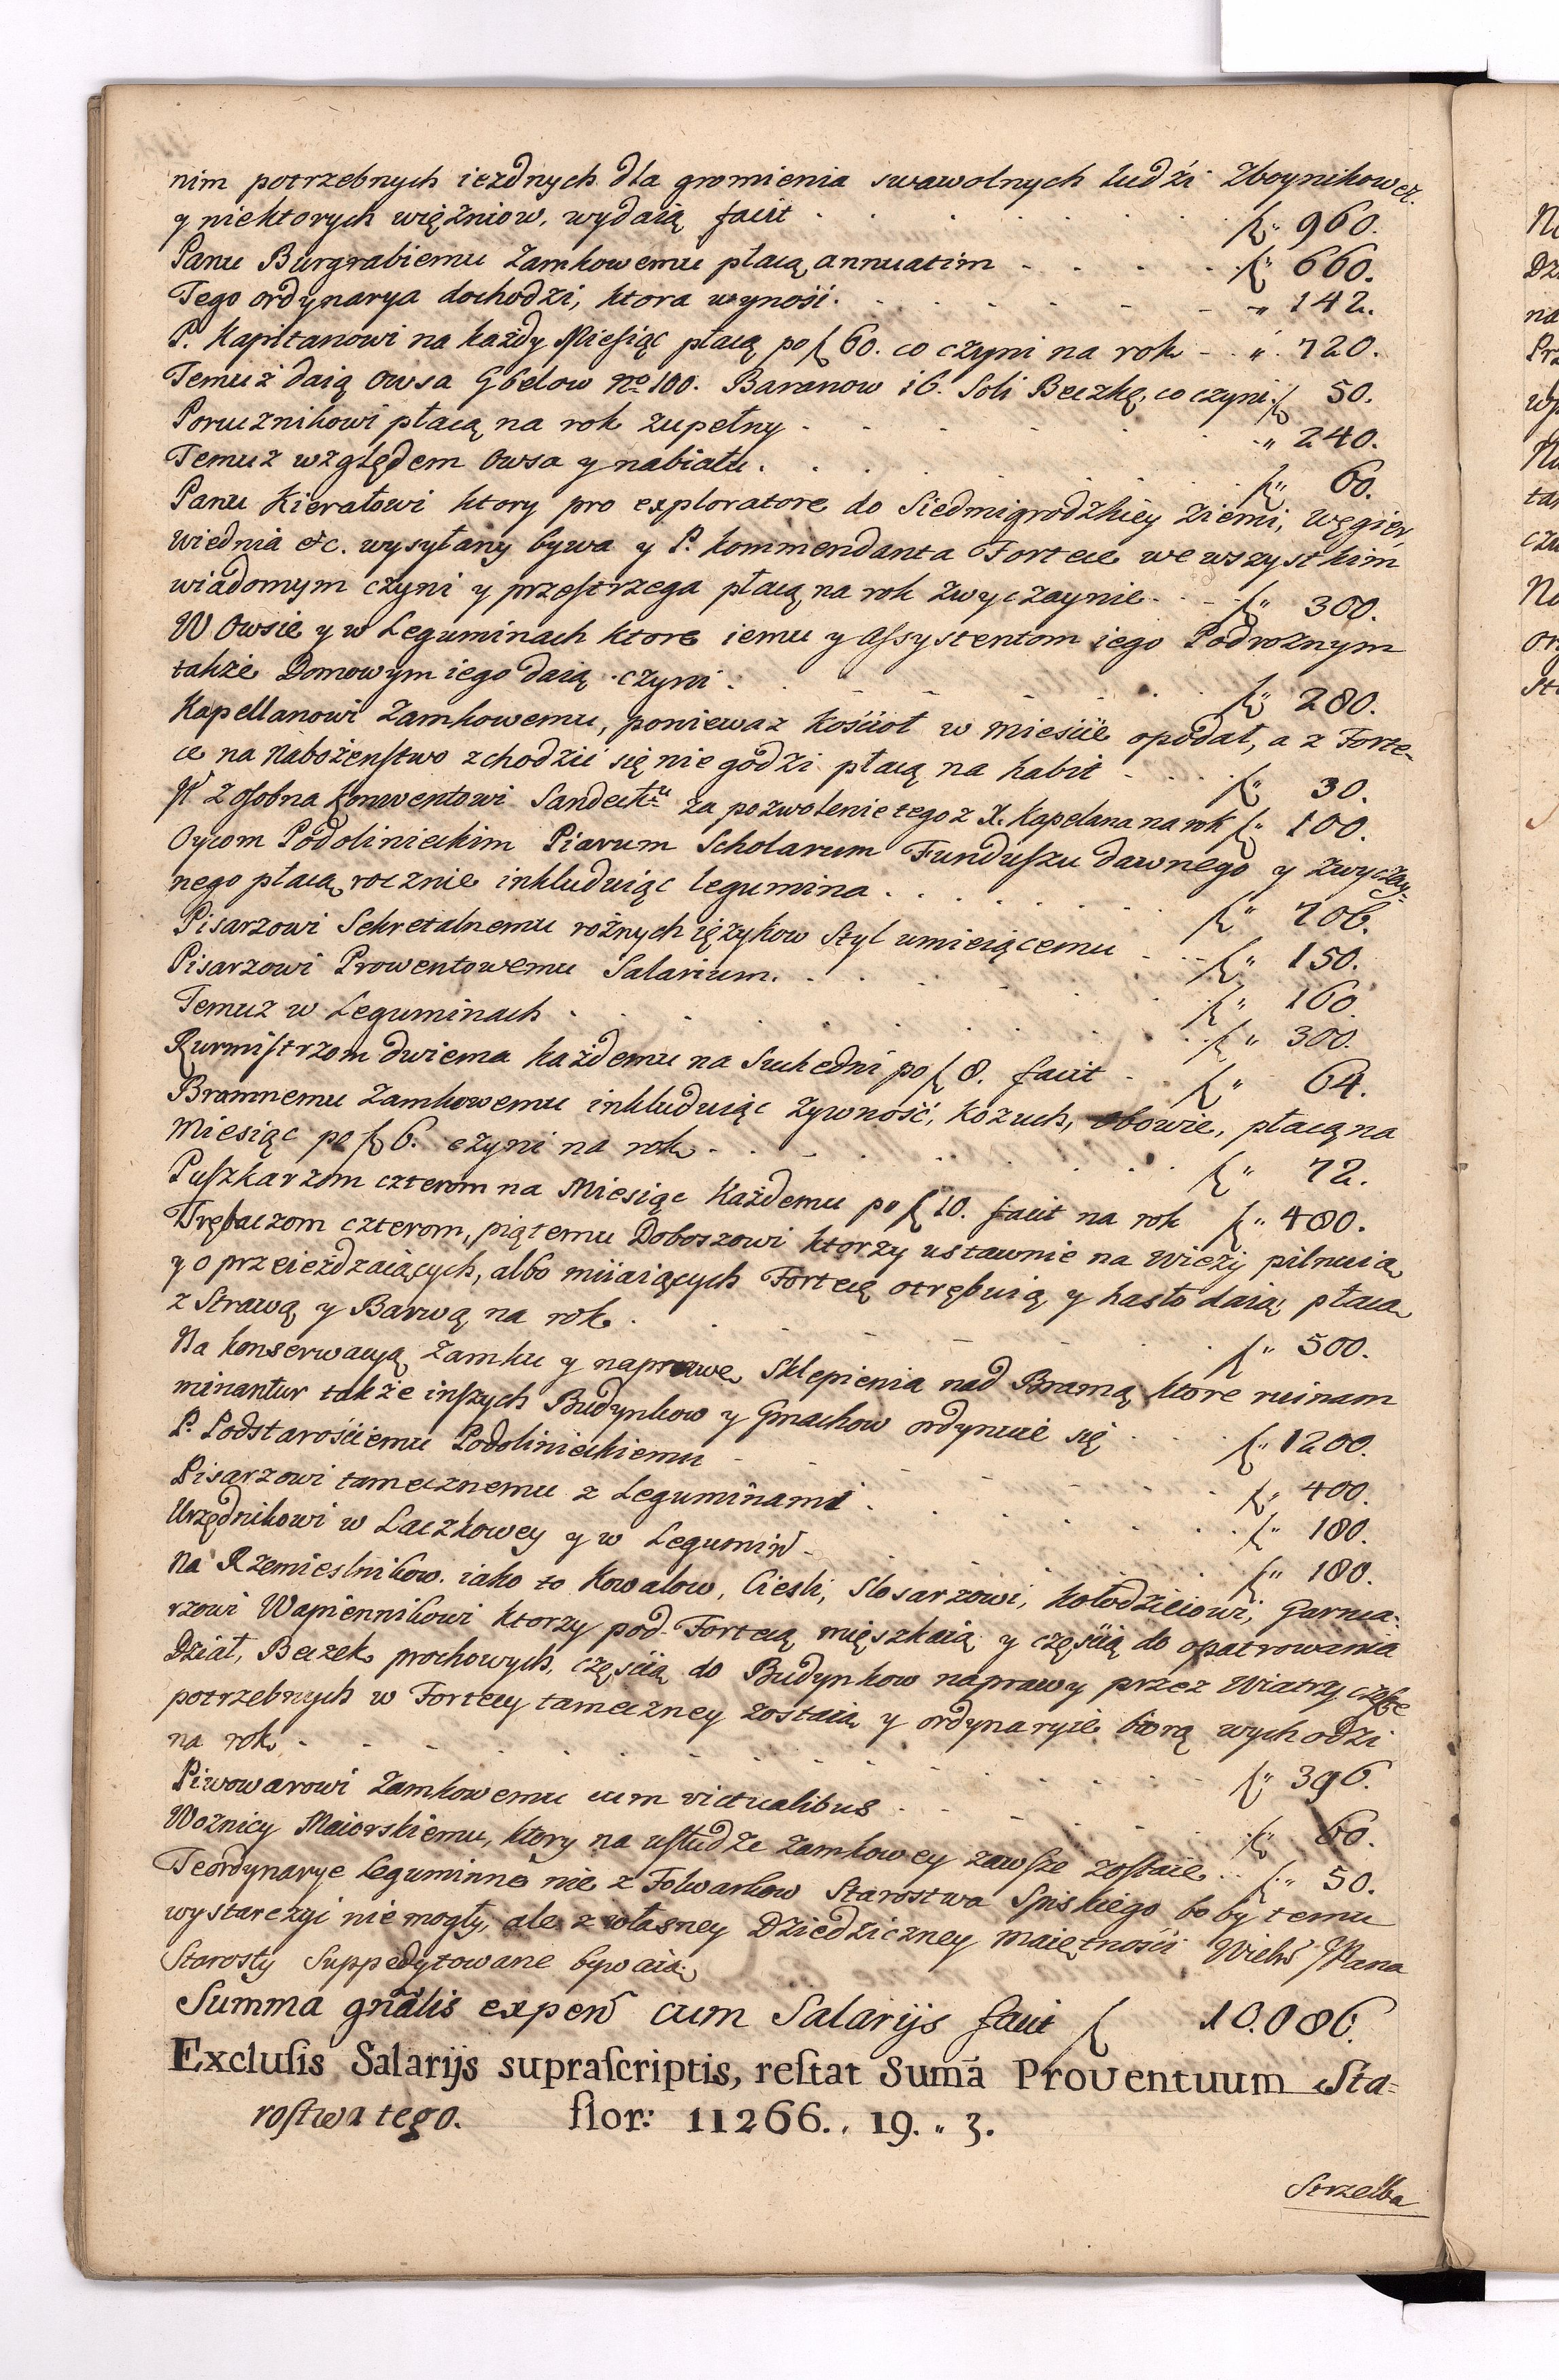 nim potrzebnych iezdnych dla gromienia swawolnych ludźi Zboynikow ez.
y niektorych więźniow, wydaią facit . . . . . fl " 960.
Panu Burgrabiemu Zamkowemu płacą annuatim - . . . fl " 660.
Tego ordynarya dochodzi, ktora wynośi . . . . - " 142.
P. Kapitanowi na każdy Miesiąc płacą po fl 60. co czyni na rok - . " 720.
Temuż daią Owsa Gbelow No 100. Baranow 16. Soli Beczkę, co czyni fl 50.
Porucznikowi płacą na rok zupełny . . . . . " 240.
Temuz względem Owsa y nabiału . . . . . fl " 60.
Panu Kierałowi ktory pro exploratore do Siedmigrodzkiey Ziemi, Węgier,
Wiednia etc. wysyłany bywa y P. Kommendanta Fortece we wszystkim
wiadomym czyni y przestrzega płacą na rok zwyczaynie . . - fl " 300.
W Owsie y w Leguminach ktore iemu y Assystentom iego Podroznym
także Domowym iego daią czyni . . . . . fl " 280.
Kapellanowi Zamkowemu, poniewaz Kośćioł w mieśćie opodal, a z Forte-
ce na Nabożenstwo zchodzić się nie godzi płacą na habit . . . fl " 30.
W Zosobna Konwentowi Sandecku za pozwolenie tego z X. Kapelana na rok fl " 100.
Oycom Podolinieckim Piarum Scholarum Funduszu dawnego y zwyczay-
nego płacą rocznie inkluduiąc legumina . . . . . fl " 706.
Pisarzowi Sekretalnemu rożnych ięzykow Styl umieiącemu . . - fl " 150.
Pisarzowi Prowentowemu Salarium . . . . . fl " 160.
Temuz w Leguminach . . . . . fl " 300.
Rurmistrzom dwiema każdemu na Suchedni po fl 8. facit - . fl " 64.
Bramnemu Zamkowemu inkluduiąc Zywność, Kozuch, obowie, płacą na
Miesiąc po fl 6. czyni na rok . . . . . fl " 72.
Puszkarzom czterom na Miesiąc Każdemu po fl 10. facit na rok fl " 480.
Trębaczom czterom, piątemu Doboszowi ktorzy ustawnie na Wieży pilnuią
y o przeieżdzaiących, albo miiaiących Fortecą otrębuią y hasło daią, płaca
z Strawą y Barwą na rok . . . . . fl " 500.
Na konserwacyą Zamku y naprawe Sklepienia nad Bramą ktore ruinam
minantur także inszych Budynkow y Gmachow ordynuie się . . . fl " 1200.
P. Podstarośćiemu Podolinieckiemu - . . . . fl " 400.
Pisarzowi tamecznemu z Leguminami . . . . fl " 180.
Urzędnikowi w Laczkowey y w Legumin . . . . fl " 180.
Na Rzemieslnikow. iako to Kowalow, Cieśli, Slosarzowi, Kołodzieiowi, Garnca-
rzowi Wapiennikowi ktorzy pod Fortecą mięszkaią y częśćią do opatrowania
Dział, Beczek prochowych, częśćią do Budynkow naprawy przez Wiatry częste
potrzebnych w Fortecy tameczney zostaią y ordynaryie biorą wychodzi
na rok - . . . . . fl " 396.
Piwowarowi Zamkowemu cum victualibus . . . . fl " 60.
Woźnicy Maiorskiemu, ktory na usłudze Zamkowey zawsze zostaie . . fl " 50.
Te ordynarye leguminne nie z Folwarkow Starostwa Spiskiego bo by temu
wystarczyć nie mogły, ale z własney Dziedziczney maiętnośći Wielm JPana
Starosty Suppedytowane bywaią.
Summa gnalis expens cum Salarijs facit fl 10.086.
Exclusis Salarijs suprascriptis, restat Suma Proventuum Sta=
rostwa tego. flor: 11266.. 19. " 3.
Strzelba